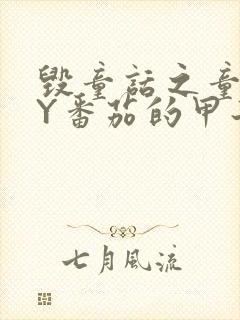 毁童话之童
Y番茄的甲
七月风流